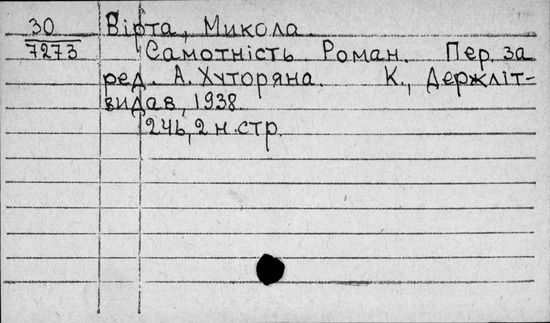 30 Вірта, Микола
7273 Самотність Роман. Пер. за
ред. А. Хуторяна. К., Держліт-
видав, 1938.
246, 2 н. стр.